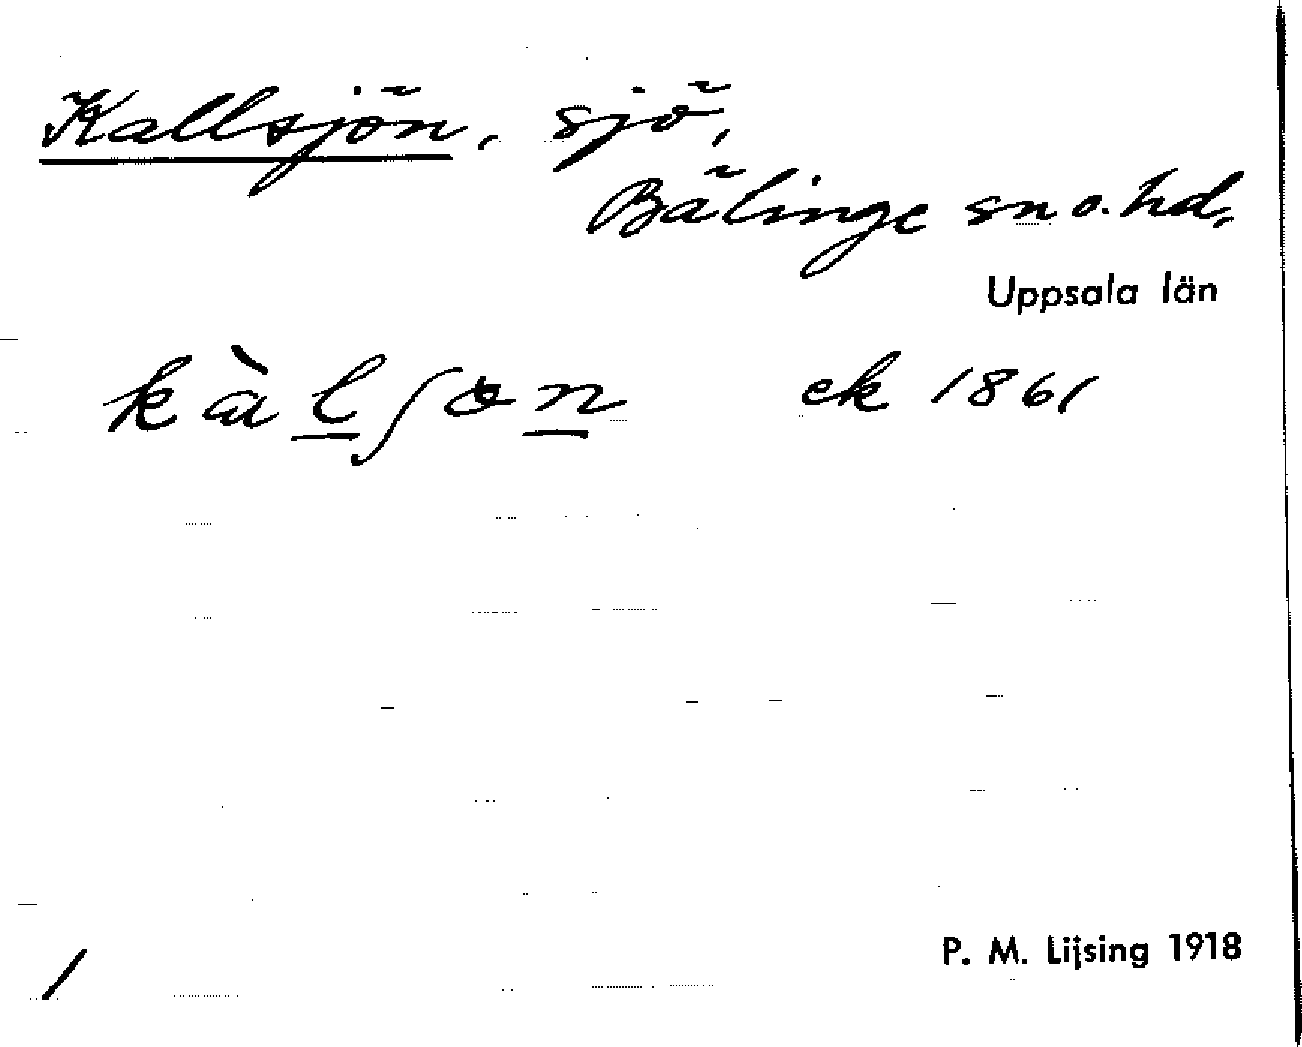 Kallsjön, sjö,
Bälinge sn o. hd,
Uppsala län
kàlʃɵn ek 1861
P. M. Lijsing 1918
/